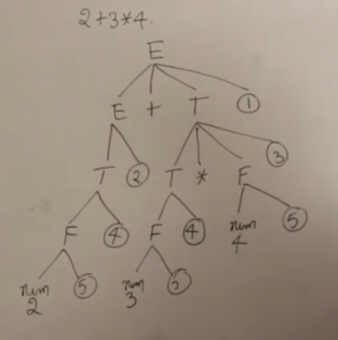 2+3*4.
E
E + T ①
T ② T * F ③
F ④ F ④ num 4 ⑤
num 2 ⑤ num 3 ⑤